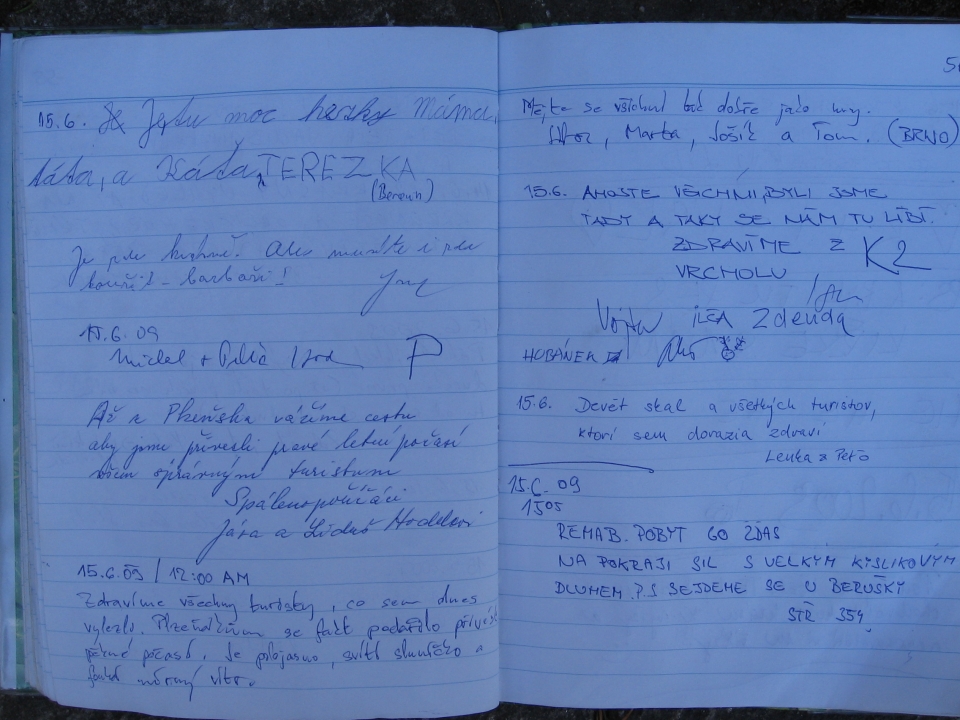 15.6. Je tu moc hezky Máma,
táta, a Káťa, TEREZKA
(Beroun)
Je pěkně. Ale musíte i
kouřit - barbaři!
15.6.09
Michal + P
Až z Plzeňska vážíme cestu
aby jsme přivezli pravé letní počasí
všem správným turistum
Spálenopoříčáci
Jára a Liduš
15.6.09 / 12:00 AM
Zdravíme všechny turisty, co sem dnes
vylezli. Plzeňákům se fakt podařilo přivést
pěkné počasí. Je polojasno, svítí sluníčko a
fouká mírný vítr.
5
Mějte se všichni tak dobře jako my.
Marta, Jošík a Tom. (BRNO)
15.6. AHOJTE VŠICHNI, BYLI JSME
TADY A TAKY SE NÁM TU LÍBÍ.
ZDRAVÍME Z K2
VRCHOLU
Vojta ILEA Zdenda
HOBÁNEK
15.6. Devět skal a všetkých turistov,
ktorí sem dorazia zdraví
Lenka a Peťo
15.6.09
1505
REHAB. POBYT GO ŽĎAS
NA POKRAJI SIL S VELKÝM KYSLÍKOVÝM
DLUHEM. P.S SEJDEME SE U BERUŠKY
STR 354